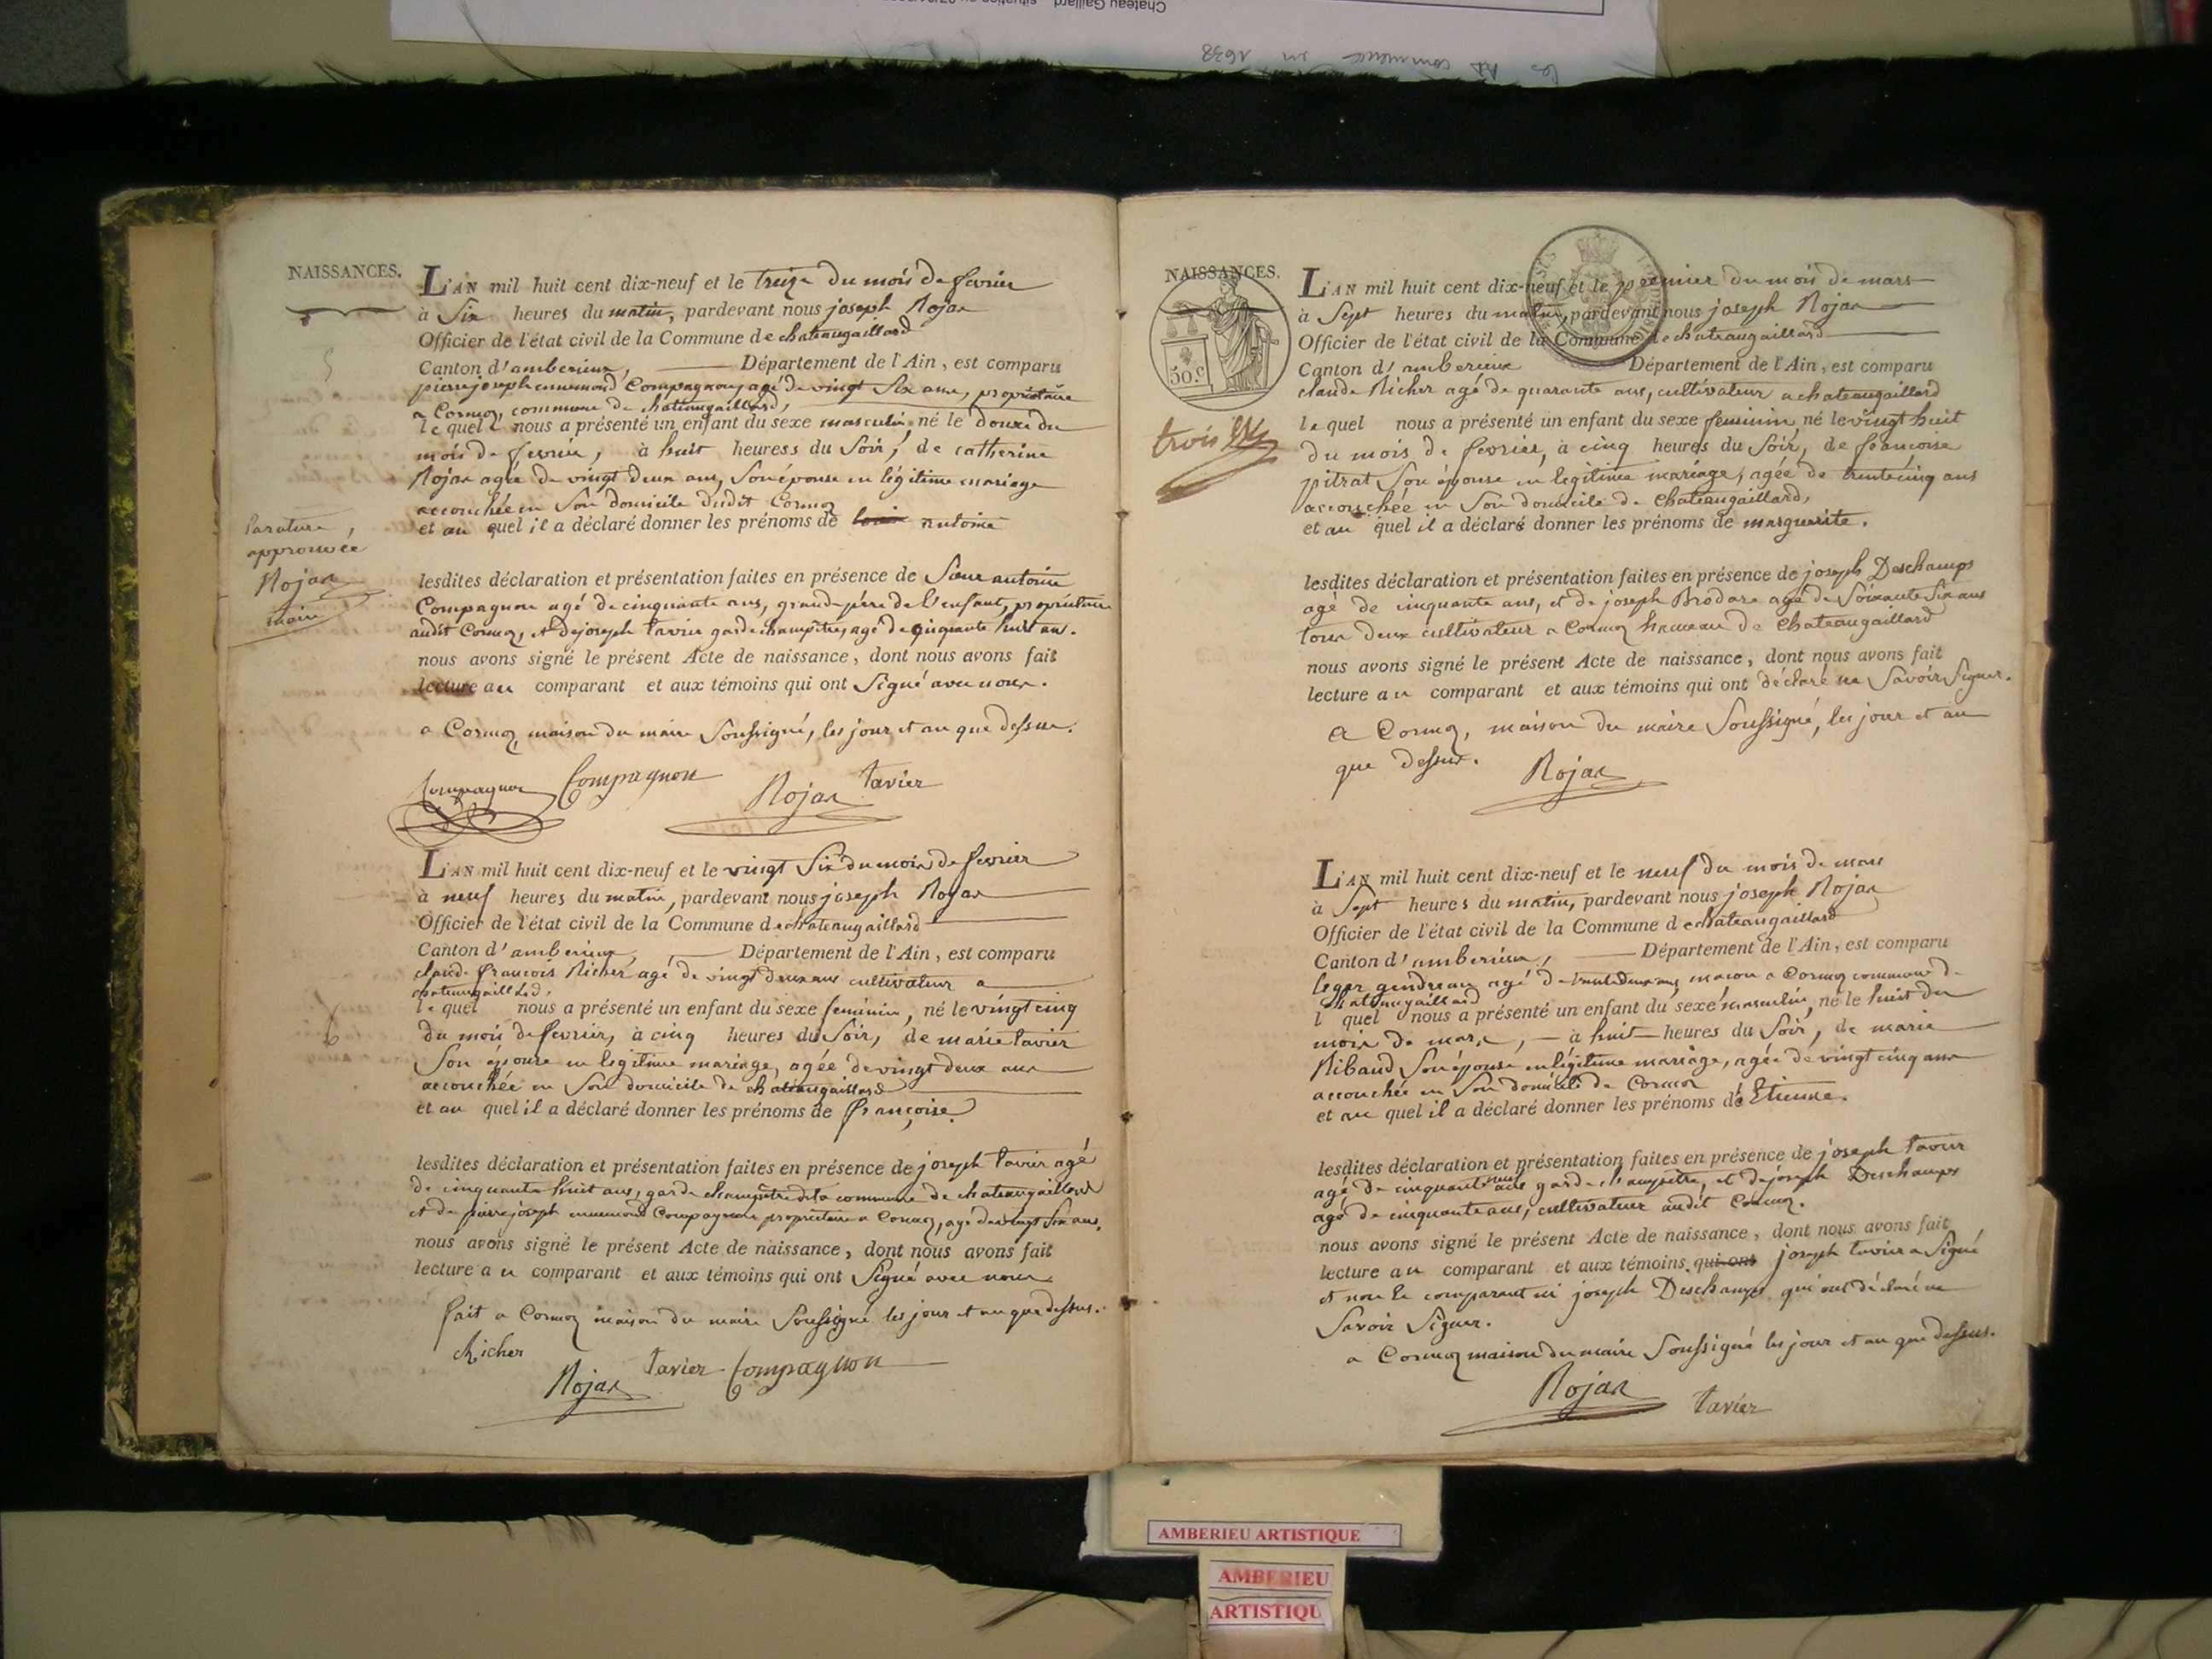 Chateau Gaillard
les commence en 1638
NAISSANCES.
L'AN mil huit cent dix-neuf et le treize du mois de fevrier
à Six heures du matin, pardevant nous joseph Rojas
Officier de l'état civil de la Commune de chateaugaillard
Canton d'amberieux, Département de l'Ain, est comparu
pierre joseph ennemond Compagnon, agé de vingt Six ans, propriétaire
a Cormoz, commune de chateaugaillard,
lequel nous a présenté un enfant du sexe masculin, né le douze du
mois de fevrier, à huit heures du Soir, de catherine
Rojas agée de vingt deux ans, Son épouse en légitime mariage
accouchée en Son domicile dudit Cormoz
et au quel il a déclaré donner les prénoms de louis antoine
Rature
approuvée
Rojas
maire
5
lesdites déclaration et présentation faites en présence de antoine
Compagnon agé de cinquante ans, grand-père de l'enfant, propriétaire
audit Cormoz, et de joseph tavier garde champêtre, agé de cinquante huit ans.
nous avons signé le présent Acte de naissance, dont nous avons fait
lecture au comparant et aux témoins qui ont Signé avec nous.
a Cormoz, maison du maire Soussigné, les jour et an que dessus.
Compagnon Compagnon Rojas tavier
L'AN mil huit cent dix-neuf et le vingt Six du mois de fevrier
à neuf heures du matin, pardevant nous joseph Rojas
Officier de l'état civil de la Commune de chateaugaillard
Canton d'amberieux, Département de l'Ain, est comparu
claude françois Richer agé de vingt deux ans cultivateur a
chateaugaillard,
lequel nous a présenté un enfant du sexe feminin, né le vingt cinq
du mois de fevrier, à cinq heures du Soir, de marie tavier
Son épouse en legitime mariage, agée de vingt deux ans
accouchée en Son domicile de chateaugaillard
et au quel il a déclaré donner les prénoms de françoise.
6
lesdites déclaration et présentation faites en présence de joseph tavier agé
de cinquante huit ans, garde champêtre de la commune de chateaugaillard
et de pierre joseph ennemond Compagnon propriétaire a Cormoz, agé de vingt Six ans.
nous avons signé le présent Acte de naissance, dont nous avons fait
lecture au comparant et aux témoins qui ont Signé avec nous
fait a Cormoz maison du maire Soussigné les jour et an que dessus.
Richer
Rojas tavier Compagnon
NAISSANCES.
50.c
L'AN mil huit cent dix-neuf et le premier du mois de mars
à Sept heures du matin, pardevant nous joseph Rojas
Officier de l'état civil de la Commune de chateaugaillard
Canton d'amberieux Département de l'Ain, est comparu
claude Richer agé de quarante ans, cultivateur a chateaugaillard
lequel nous a présenté un enfant du sexe feminin, né le vingt huit
du mois de fevrier, à cinq heures du Soir, de françoise
pitrat Son épouse en legitime mariage, agée de trente cinq ans
accouchée en Son domicile de chateaugaillard,
et au quel il a déclaré donner les prénoms de marguerite.
trois
lesdites déclaration et présentation faites en présence de joseph Deschamps
agé de cinquante ans, et de joseph Brodare agé de Soixante Six ans
tous deux cultivateur a Cormoz hameau de Chateaugaillard
nous avons signé le présent Acte de naissance, dont nous avons fait
lecture au comparant et aux témoins qui ont déclaré ne Savoir Signer.
a Cormoz, maison du maire Soussigné, les jour et an
que dessus. Rojas
L'AN mil huit cent dix-neuf et le neuf du mois de mars
à Sept heures du matin, pardevant nous joseph Rojas
Officier de l'état civil de la Commune de chateaugaillard
Canton d'amberieux, Département de l'Ain, est comparu
leger gendreau agé de trente deux ans, macon a Cormoz commune de
chateaugaillard
lquel nous a présenté un enfant du sexe masculin, né le huit du
mois de mars, à huit heures du Soir, de marie
Ribaud Son épouse en légitime mariage, agée de vingt cinq ans
accouchée en Son domicile de Cormoz
et au quel il a déclaré donner les prénoms de Etienne.
lesdites déclaration et présentation faites en présence de joseph tavier
agé de cinquante neuf ans garde champêtre, et de joseph Deschamps
agé de cinquante ans, cultivateur audit Cormoz.
nous avons signé le présent Acte de naissance, dont nous avons fait
lecture au comparant et aux témoins qui ont joseph tavier a Signé
et non le comparant ni joseph Deschamps qui ont déclaré ne
Savoir Signer.
a Cormoz maison du maire Soussigné les jour et an que dessus.
Rojas tavier
AMBERIEU ARTISTIQUE
AMBERIEU
ARTISTIQU